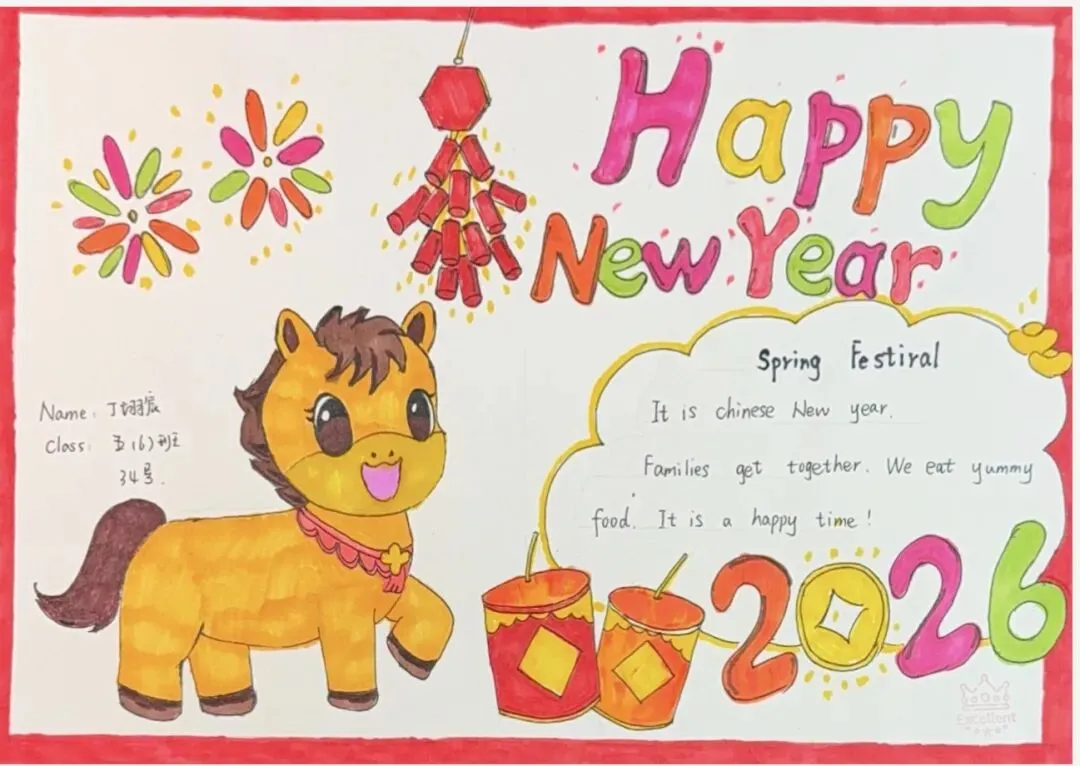 Happy
New Year
Spring Festiral
It is chinese New year.
Families get together. We eat yummy
food. It is a happy time!
Name: 丁翊宸
Class: 五(6)班
34号.
2026
Excellent